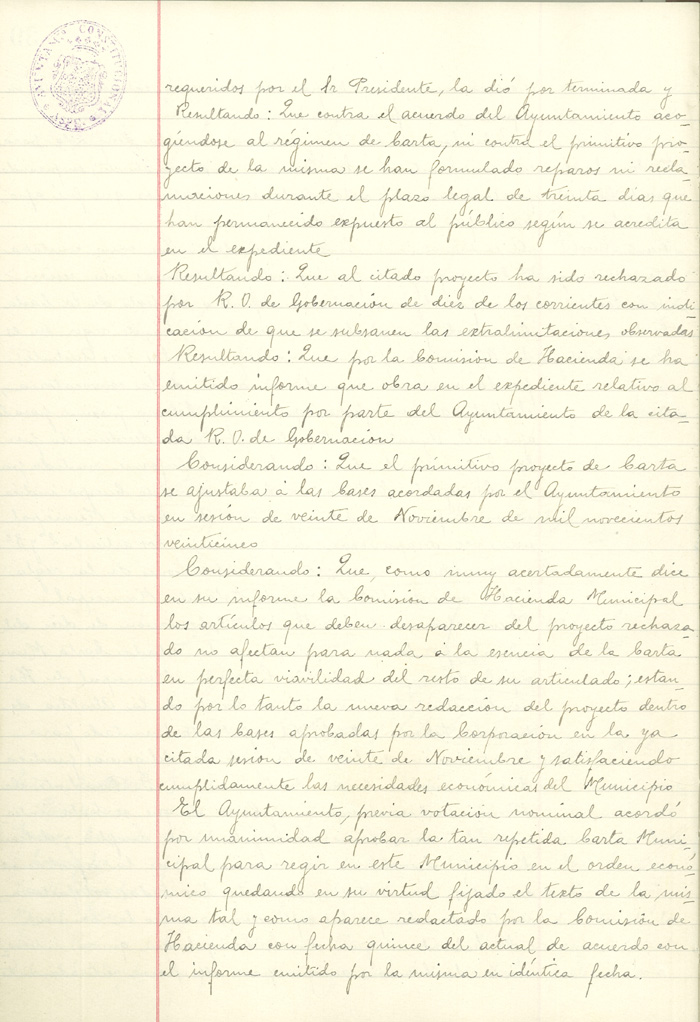 AYUNTAMᵗᵒ CONSTITUCIONAL
requeridos por el Sr Presidente, la dió por terminada y
Resultando: Que contra el acuerdo del Ayuntamiento aco-
giéndose al régimen de Carta, ni contra el primitivo pro-
yecto de la misma se han formulado reparos ni recla-
maciones durante el plazo legal de treinta dias que
han permanecido expuesto al público según se acredita
en el expediente
Resultando: Que al citado proyecto ha sido rechazado
por R. O. de Gobernación de diez de los corrientes con indi-
cación de que se subsanen las extralimitaciones observadas
Resultando: Que por la Comisión de Hacienda se ha
emitido informe que obra en el expediente relativo al
cumplimiento por parte del Ayuntamiento de la cita-
da R. O. de Gobernación
Considerando: Que el primitivo proyecto de Carta
se ajustaba á las bases acordadas por el Ayuntamiento
en sesión de veinte de Noviembre de mil novecientos
veinticinco
Considerando: Que, como muy acertadamente dice
en su informe la Comisión de Hacienda Municipal
los artículos que deben desaparecer del proyecto rechaza-
do no afectan para nada á la esencia de la Carta
en perfecta viavilidad del resto de su articulado; estan-
do por lo tanto la nueva redacción del proyecto dentro
de las bases aprobadas por la Corporación en la ya
citada sesión de veinte de Noviembre y satisfaciendo
cumplidamente las necesidades económicas del Municipio
El Ayuntamiento, previa votación nominal acordó
por unanimidad aprobar la tan repetida Carta Muni-
cipal para regir en este Municipio en el orden econó-
mico quedando en su virtud fijado el texto de la mis-
ma tal y como aparece redactado por la Comisión de
Hacienda con fecha quince del actual de acuerdo con
el informe emitido por la misma en idéntica fecha.